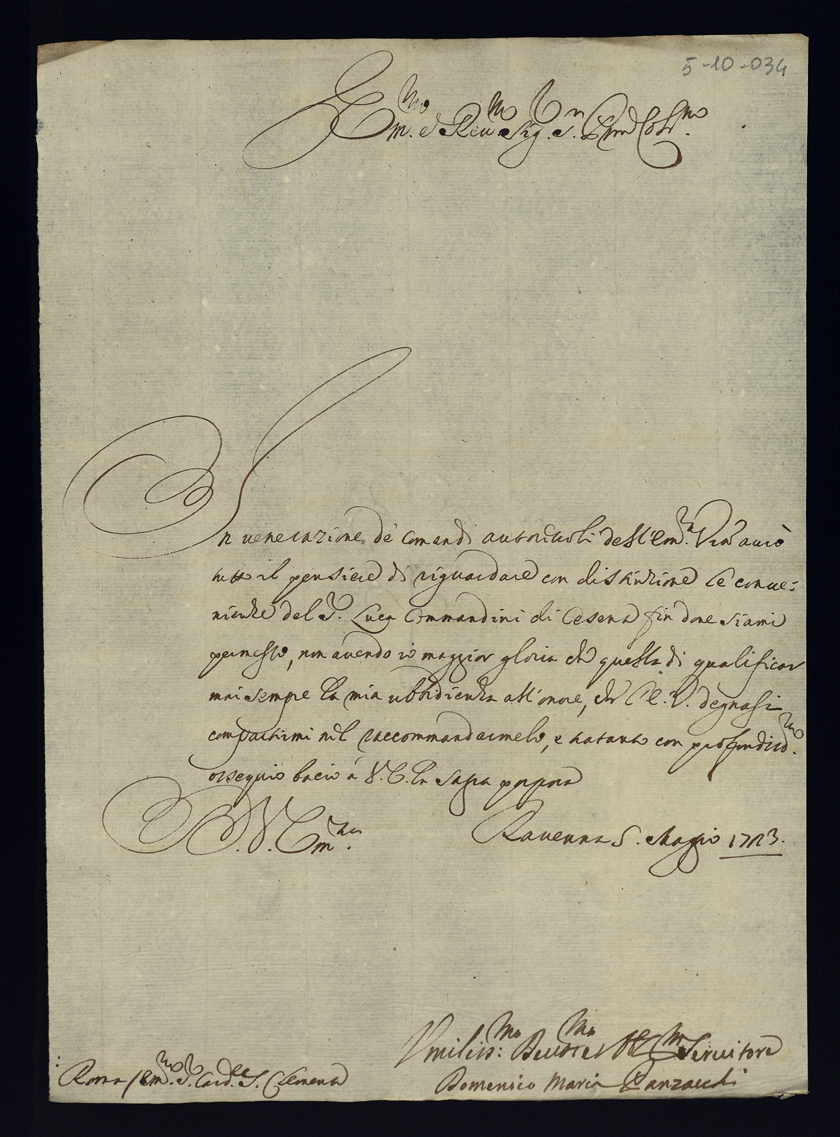 5-10-034
Em.mo e Rev.mo Sig.r S.n P.ron Col.mo
In venerazione de comandi autorevoli dell'Em.za V.ra avrò
tutto il pensiere di riguardare con distinzione le conve:
nienze del S.r Luca Commandini di Cesena fin dove siami
permesso, non avendo io maggior gloria che questa di qualificar
mai sempre la mia ubbidienza all'onore, che l'E. V. degnasi
compartirmi nel raccommandarmelo, e intanto con profondiss.mo
ossequio bacio à V. E. la Sagra porpora
D. V. Em.za
Ravenna 5. Maggio 1713.
Umiliss.mo Devot.mo Obl.mo Servitore
Roma / Em.mo S.r Card.le S. Clemente
Domenico Maria Panzacchi